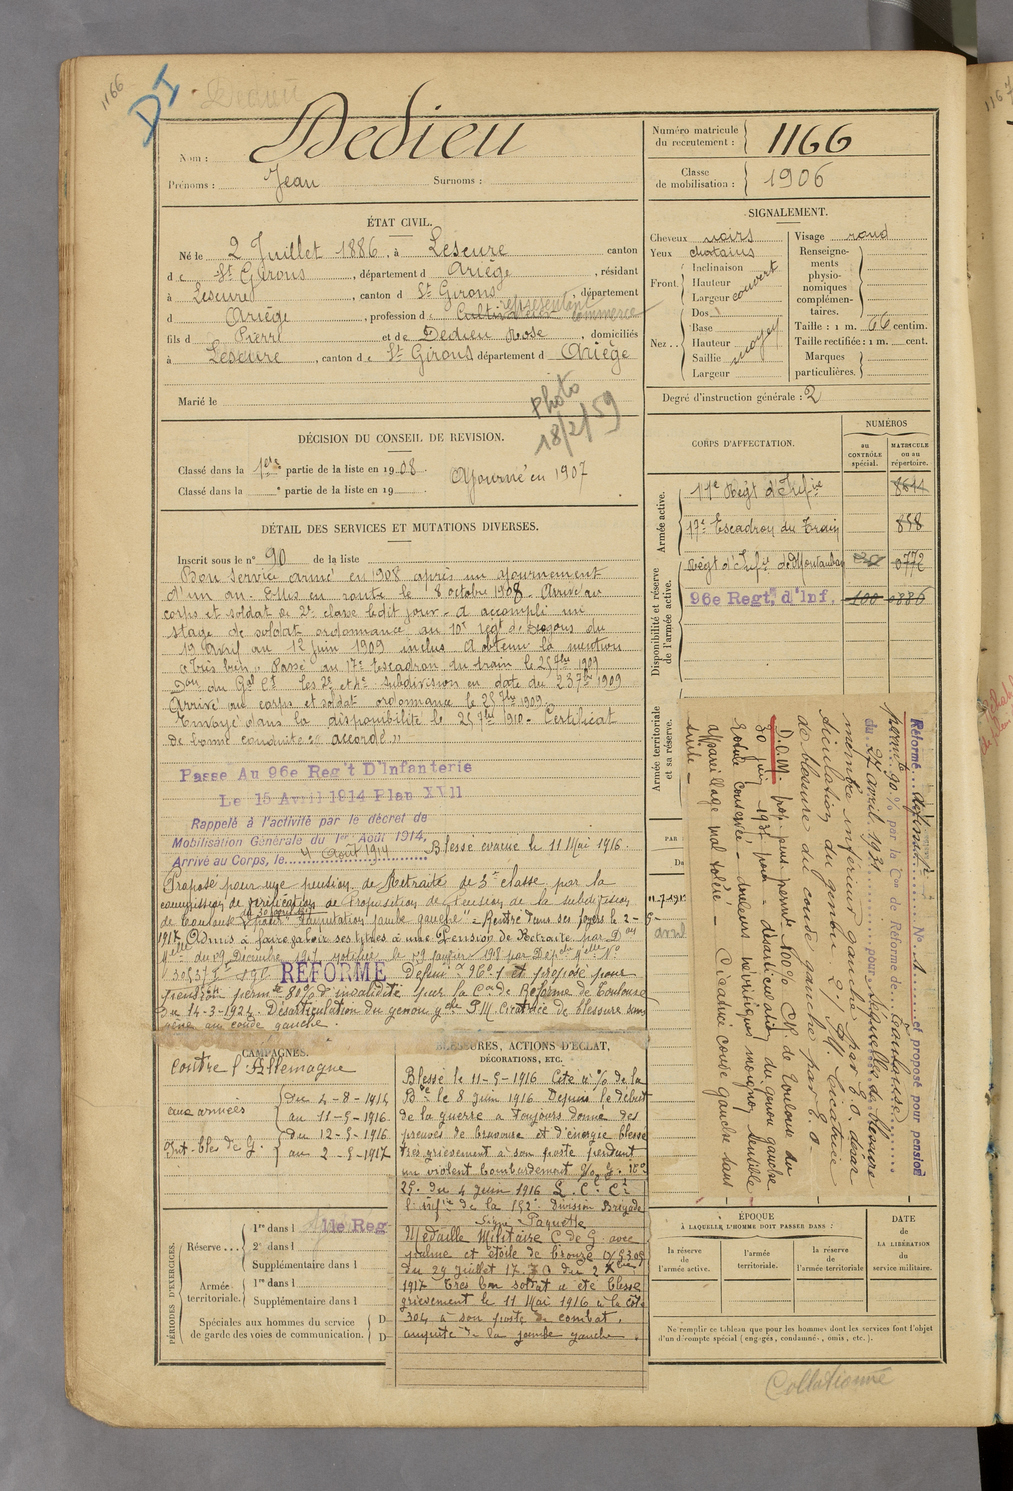 1166
DI
Dedieu
Nom : Dedieu
Prénoms : Jean Surnoms :
Numéro matricule du recrutement : 1166
Classe de mobilisation : 1906
ÉTAT CIVIL.
Né le 2 Juillet 1886, à Lescure canton
de St Girons, département d Ariège, résidant
à Lescure, canton d St Girons, département
représentant
d Ariège, profession d Cultivateur commerce
fils d Pierre et de Dedieu Rose, domiciliés
à Lescure, canton de St Girons département d Ariège
Marié le
Photo
18/2/59
SIGNALEMENT.
Cheveux noirs
Yeux chatains
Front. Inclinaison
Hauteur
Largeur couvert
Nez .. Dos
Base
Hauteur moyen
Saillie
Largeur
Visage rond
Renseignements physionomiques complémentaires.
Taille : 1 m. 66 centim.
Taille rectifiée : 1 m. cent.
Marques particulières.
Degré d'instruction générale : 2
DÉCISION DU CONSEIL DE REVISION.
Classé dans la 1re partie de la liste en 1908.
Classé dans la e partie de la liste en 19
Ajourné en 1907
CORPS D'AFFECTATION.
NUMÉROS
au CONTRÔLE spécial.
MATRICULE ou au répertoire.
Armée active.
8614
17e Escadron du Train 858
Disponibilité et réserve de l'armée active.
Régt d'Infie de Montauban
96e Regt. d'Inf. 100 0886
Armée territoriale et sa réserve.
DÉTAIL DES SERVICES ET MUTATIONS DIVERSES.
Inscrit sous le n° 90 de la liste
Bon service armé en 1908 après un ajournement
d'un an. Mis en route le 8 octobre 1908. Arrivé au
corps et soldat de 2e classe ledit jour. A accompli un
stage de soldat ordonnance au 10e régt de Dragons du
19 Avril au 12 juin 1909 inclus. A obtenu la mention
"Très bien". Passé au 17e Escadron du train le 25 7bre 1909
les 2e et 4e subdivision en date du 23 7bre 1909
Arrivé au corps et soldat ordonnance le 25 7bre 1909.
Envoyé dans la disponibilité le 25 7bre 1910. Certificat
de bonne conduite "accordé"
Passe Au 96e Reg't D'Infanterie
Le 15 Avril 1914 Plan XVII
Rappelé à l'activité par le décret de
Mobilisation Générale du 1er Août 1914,
Arrivé au Corps, le 4 Août 1914 Blessé évacué le 11 Mai 1916.
Proposé pour une pension de Retraite de 3e classe par la
commission de vérification de Proposition de pension de la subdivision
de Toulouse pour "Amputation jambe gauche" - Rentré dans ses foyers le 2-5-
1917. Admis à faire valoir ses titres à une Pension de Retraite par Don
Melle du 29 Décembre 1917 notifiée le 29 Janvier 1918 par Dépche Melle No
RÉFORMÉ Définif et proposé pour
pension permte 80% d'invalidité par la Con de Réforme de Toulouse
du 14-3-1924. Désarticulation du genou gche cicatrice de blessure sans
gêne au coude gauche.
Réformé définitif No 1 et proposé pour pension
permte 90 % par la Con de Réforme de Toulouse
du 27 avril 1931 pour Séquelles de blessure
membre inférieur gauche par E.O. désar
ticulation du genou G. Cicatrice
de blessure du coude gauche par E.O -
D.C.M. pop. pens. permte 100% C.R. de Toulouse du
30 juin 1937 pour - désarticulation du genou gauche
Rotule conservée - douleurs névritiques moignon sensible
appareillage mal toléré - Cicatrice coude gauche sans
suite -
CAMPAGNES.
contre l'Allemagne
aux armées du 4-8-1914
au 11-5-1916
Int. bles de G. du 12-5-1916
au 2-5-1917
BLESSURES, ACTIONS D'ÉCLAT,
DÉCORATIONS, ETC.
Blessé le 11-5-1916 Cité à l'o/ de la
Bde le 8 juin 1916. Depuis le début
de la guerre a toujours donné des
preuves de bravoure et d'énergie blessé
très grièvement à son poste pendant
un violent bombardement
25. du 4 juin 1916 L. Cl Ct
l'infie de la 152e Division Brigade
Signé Paquette
Médaille Militaire C de G. avec
palme et étoile de bronze
du 29 juillet 17. J.O du 2 Xbre
1917 Très bon soldat a été blessé
grièvement le 11 Mai 1916 à la côte
304 à son poste de combat.
amputé de la jambe gauche.
PÉRIODES D'EXERCICES.
Réserve ... 1re dans l 11e Reg
2e dans l
Supplémentaire dans l
Armée territoriale. 1re dans l
Supplémentaire dans l
Spéciales aux hommes du service
de garde des voies de communication.
ÉPOQUE
À LAQUELLE L'HOMME DOIT PASSER DANS :
la réserve de l'armée active.
l'armée territoriale.
la réserve de l'armée territoriale
DATE
DE LA LIBÉRATION
du
service militaire.
Ne remplir ce tableau que pour les hommes dont les services font l'objet
d'un décompte spécial (engagés, condamnés, omis, etc.).
Collationné